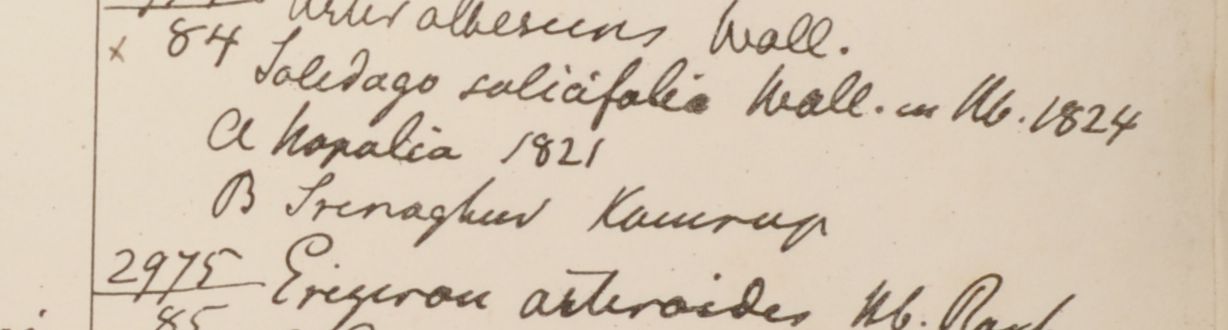 Aster albescens Wall.
x 84 Solidago salicifolia Wall. in Hb. 1824
a Napalia 1821
B Srenaghur Kamrup
2975 Erigeron asteroides Hb. Roxb
85